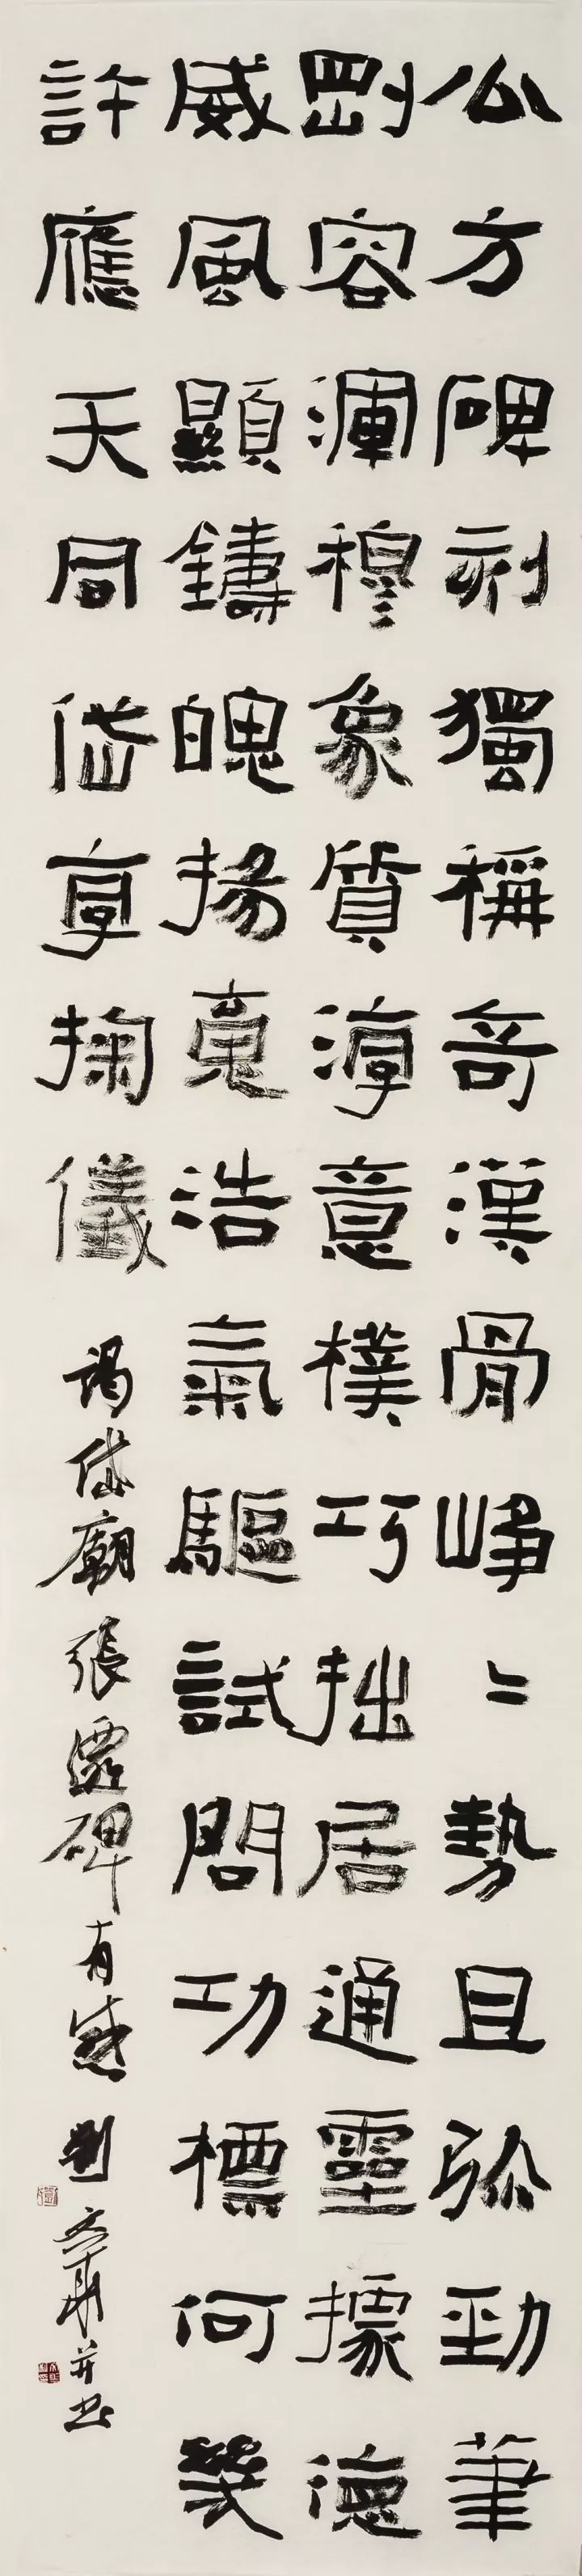 公方碑刻獨稱奇漢骨崢〻勢且弥勁筆
剛容渾穆象質淳意樸巧拙居通靈據德
威風顯鑄魄揚魂浩氣驅試問功標何幾
許應天同岱享掬儀 謁岱廟張遷碑有感 劉文華并書